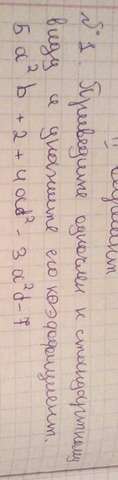 Вариант
№1. Приведите одночлен к стандартному
виду и укажите его коэффициент.
5a²b + 2 + 4ad² - 3a²d - 7